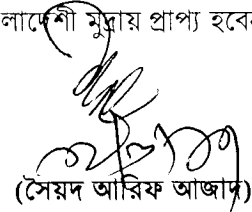 লাদেশী মুদ্রায় প্রাপ্য হবে
(সৈয়দ আরিফ আজাদ)